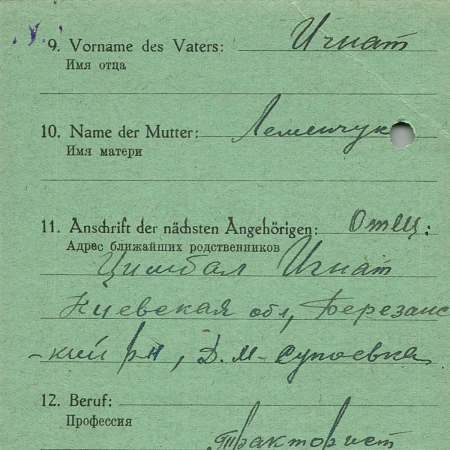 9. Vorname des Vaters: Игнат
Имя отца
10. Name der Mutter: Леменчук
Имя матери
11. Anschrift der nächsten Angehörigen: Отец:
Адрес ближайших родственников
Цимбал Игнат
Киевская обл, Березанс
-кий рн, Д. М-Супоевка
12. Beruf:
Профессия
тракторист